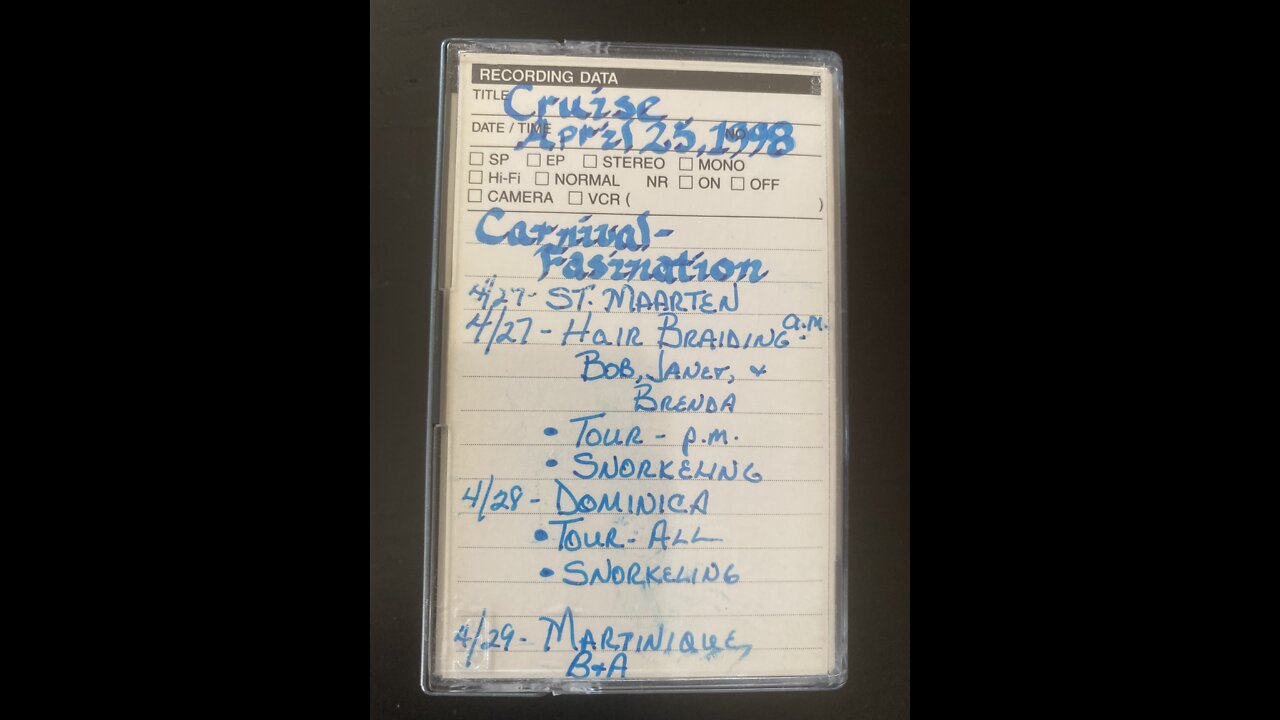 RECORDING DATA
TITLE Cruise
DATE / TIME April 25, 1998 NO.
SP EP STEREO MONO
Hi-Fi NORMAL NR ON OFF
CAMERA VCR ( )
Carnival-
Fasination
4/27- ST. MAARTEN
4/27- HAIR BRAIDING a.m.
BOB, JANET, &
BRENDA
• TOUR - p.m.
• SNORKELING
4/28- DOMINICA
• TOUR- ALL
• SNORKELING
4/29- MARTINIQUE,
B+A